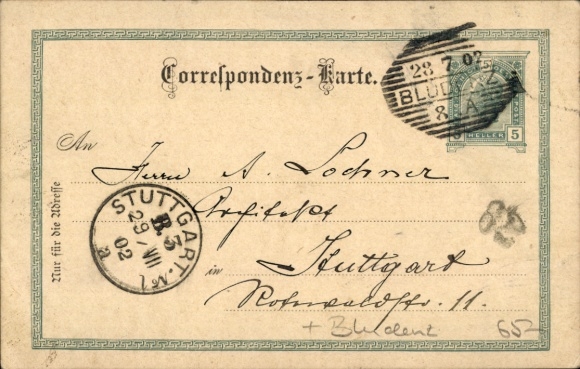 Correspondenz-Karte.
28 7 02
BLUDENZ
8 A
5 HELLER 5
An
Herrn A. Lochner
Architekt
in Stuttgart
Rotewaldstr. 11.
Nur für die Adresse
STUTTGART. No 1
B. 3
29/VII
02
a
+ Bludenz
652